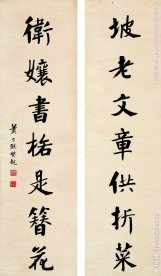 坡老文章供折菜
衛孃書格是簪花